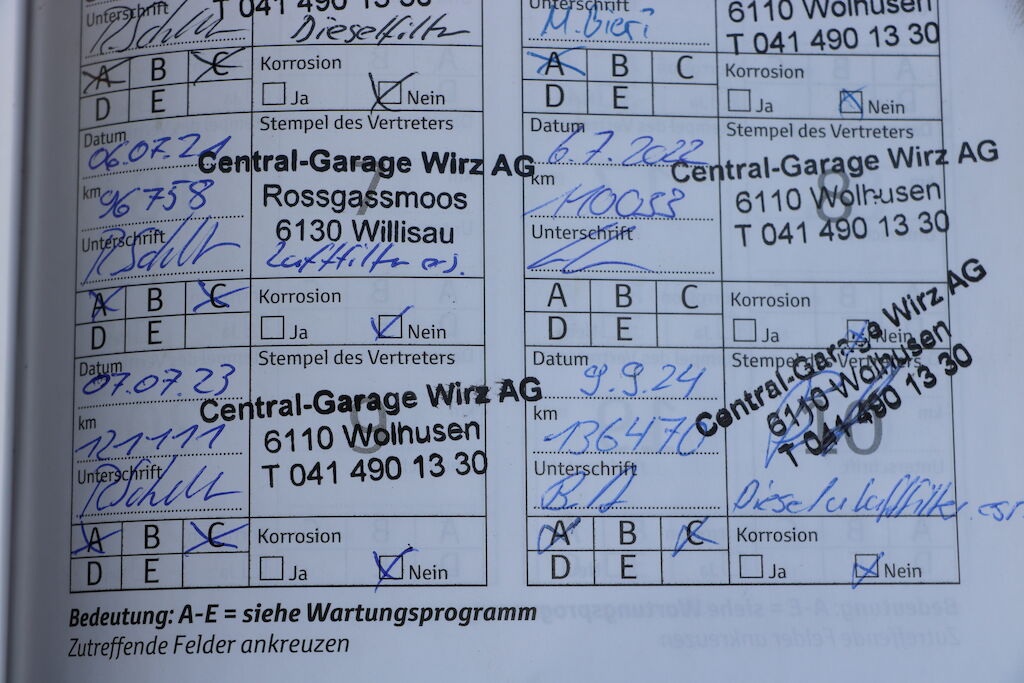 Unterschrift
T 041 490 13 30
R. Schll
Dieselfilter
A B C
D E
Korrosion
Ja Nein
Datum
06.07.21
km
96758
Unterschrift
Stempel des Vertreters
7
Central-Garage Wirz AG
Rossgassmoos
6130 Willisau
Luftfilter ers.
A B C
D E
Korrosion
Ja Nein
Datum
07.07.23
km
121111
Unterschrift
Stempel des Vertreters
9
Central-Garage Wirz AG
6110 Wolhusen
T 041 490 13 30
A B C
D E
Korrosion
Ja Nein
Bedeutung: A-E = siehe Wartungsprogramm
Zutreffende Felder ankreuzen
Unterschrift
M. Bieri
6110 Wolhusen
T 041 490 13 30
A B C
D E
Korrosion
Ja Nein
Datum
6.7.2022
km
110033
Unterschrift
Stempel des Vertreters
8
Central-Garage Wirz AG
6110 Wolhusen
T 041 490 13 30
A B C
D E
Korrosion
Ja Nein
Datum
9.9.24
km
136470
Unterschrift
B. A
Stempel des Vertreters
10
Central-Garage Wirz AG
6110 Wolhusen
T 041 490 13 30
Diesel u Luftfilter ers
A B C
D E
Korrosion
Ja Nein